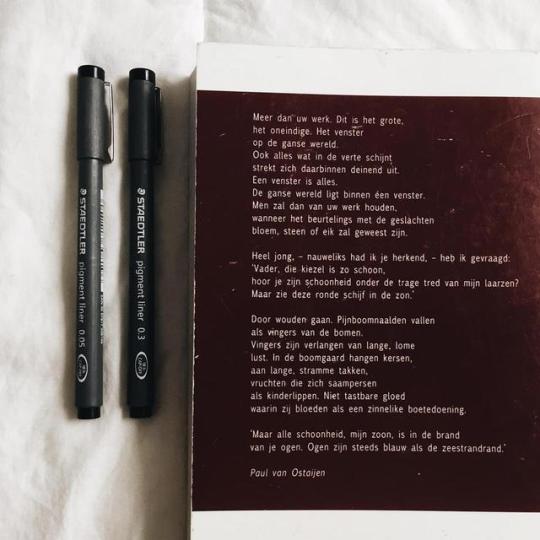 STAEDTLER pigment liner 0.05
STAEDTLER pigment liner 0.3
Meer dan uw werk. Dit is het grote,
het oneindige. Het venster
op de ganse wereld.
Ook alles wat in de verte schijnt
strekt zich daarbinnen deinend uit.
Een venster is alles.
De ganse wereld ligt binnen één venster.
Men zal dan van uw werk houden,
wanneer het beurtelings met de geslachten
bloem, steen of eik zal geweest zijn.
Heel jong, – nauweliks had ik je herkend, – heb ik gevraagd:
'Vader, die kiezel is zo schoon,
hoor je zijn schoonheid onder de trage tred van mijn laarzen?
Maar zie deze ronde schijf in de zon.'
Door wouden gaan. Pijnboomnaalden vallen
als vingers van de bomen.
Vingers zijn verlangen van lange, lome
lust. In de boomgaard hangen kersen,
aan lange, stramme takken,
vruchten die zich saampersen
als kinderlippen. Niet tastbare gloed
waarin zij bloeden als een zinnelike boetedoening.
'Maar alle schoonheid, mijn zoon, is in de brand
van je ogen. Ogen zijn steeds blauw als de zeestrandrand.'
Paul van Ostaijen